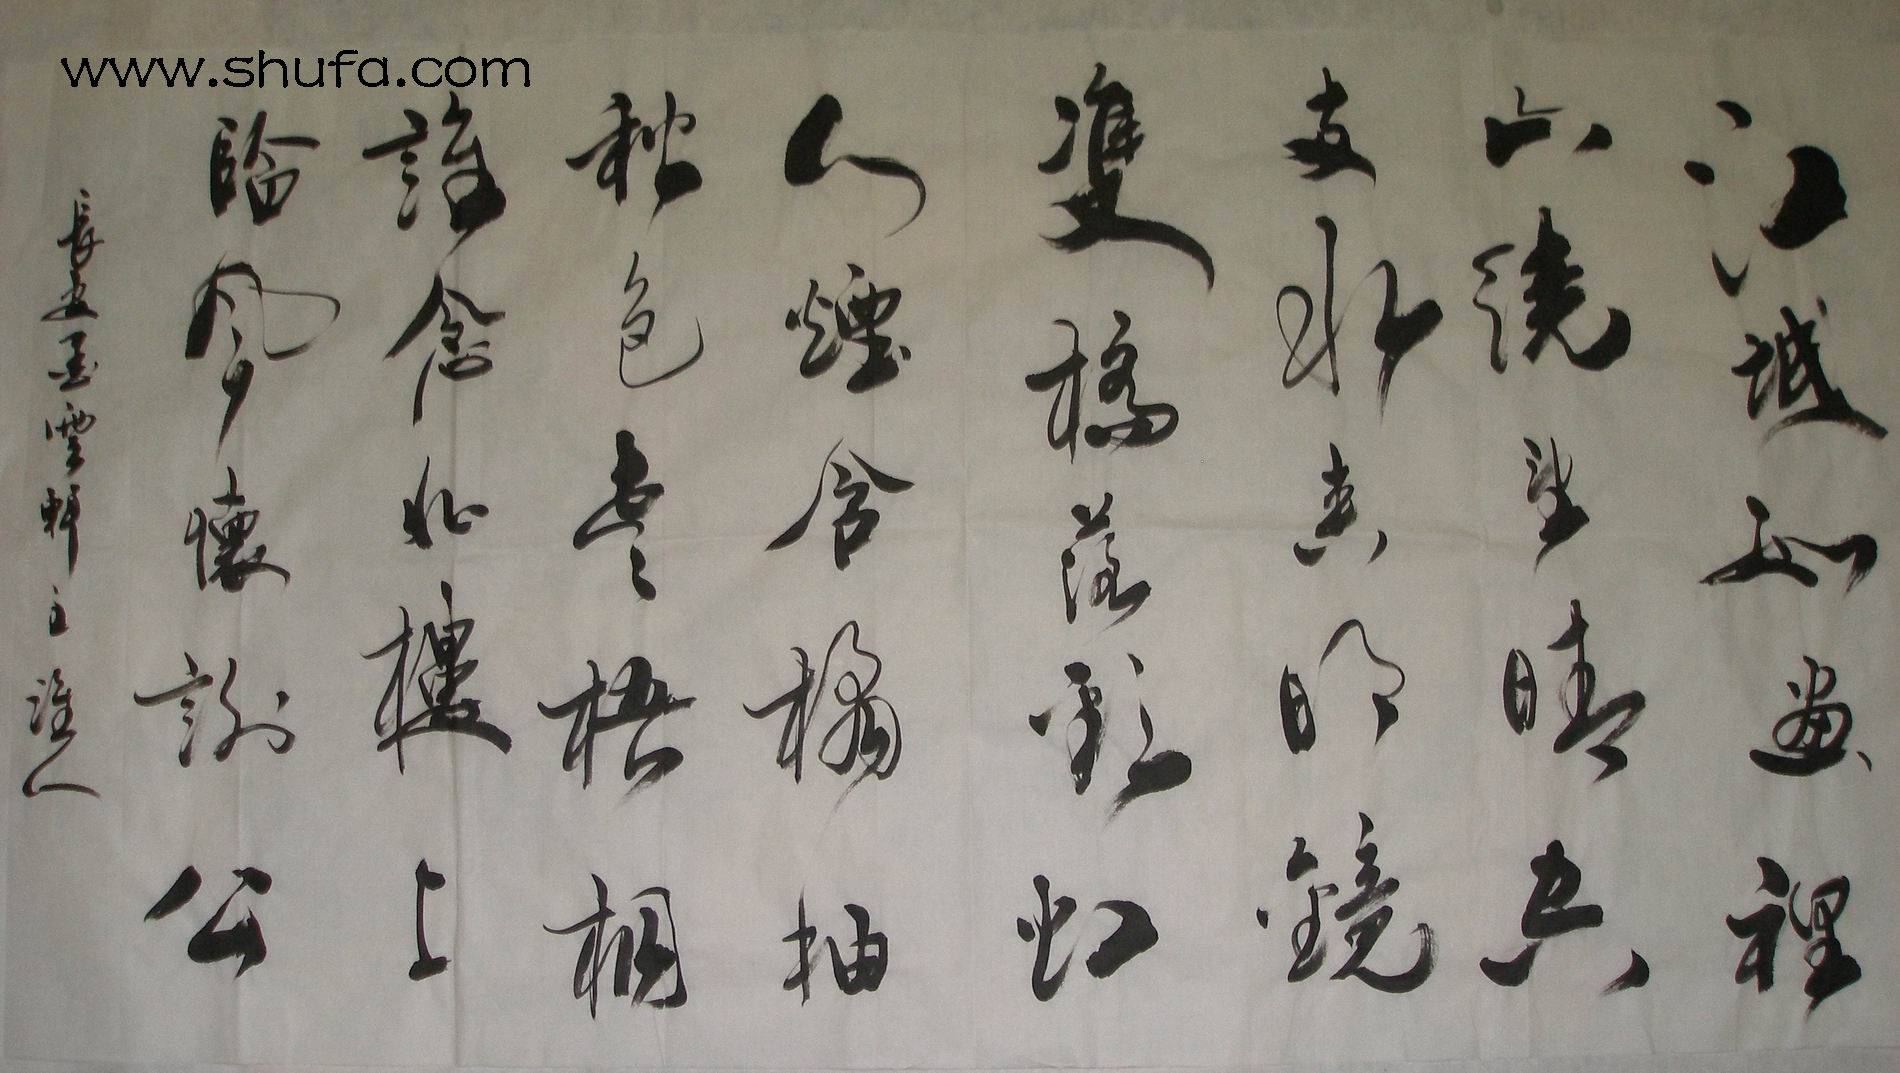 www.shufa.com
江城如畫裡
山繞望晴空
兩水夾明鏡
雙橋落彩虹
人煙含橘柚
秋色老梧桐
誰念北樓上
臨風懷謝公
墨雲軒主